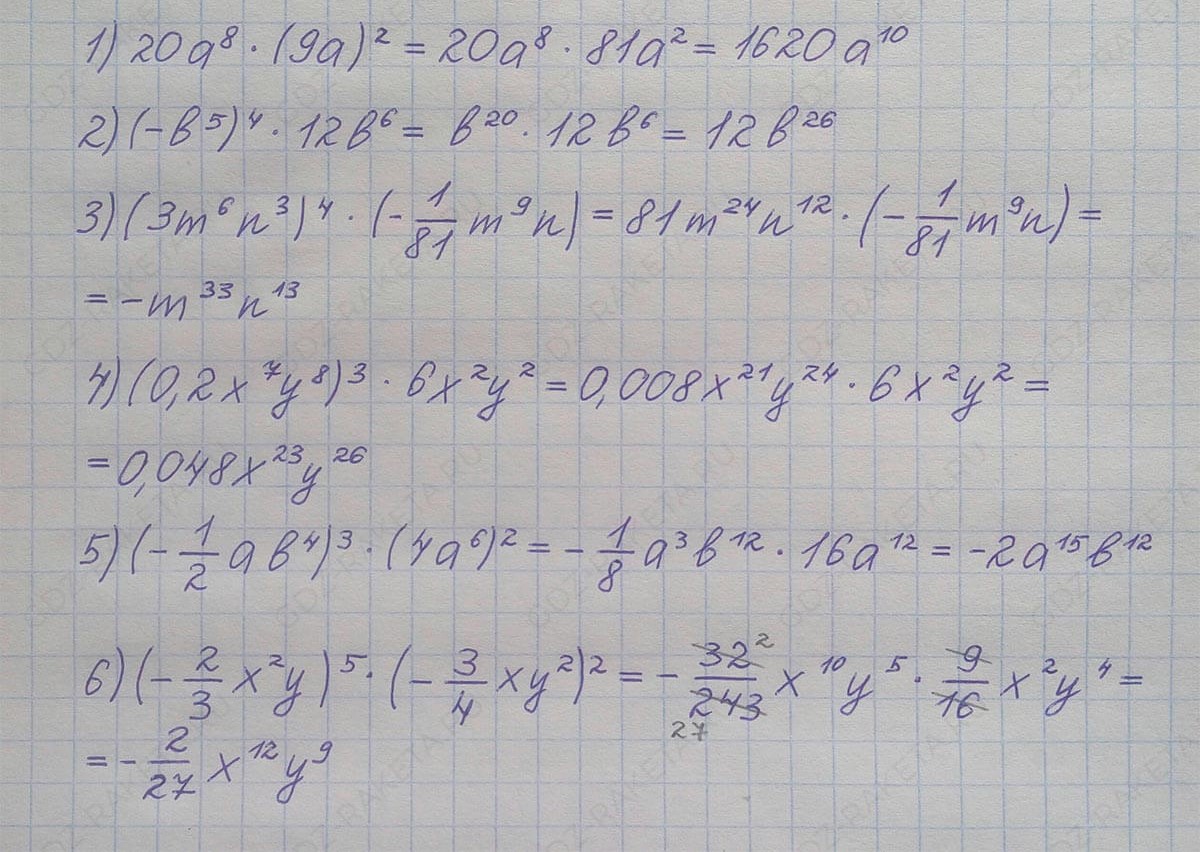 1) 20a⁸ · (9a)² = 20a⁸ · 81a² = 1620a¹⁰
2) (-b⁵)⁴ · 12b⁶ = b²⁰ · 12b⁶ = 12b²⁶
3) (3m⁶n³)⁴ · (-1/81 m⁹n) = 81m²⁴n¹² · (-1/81 m⁹n) =
= -m³³n¹³
4) (0,2x⁷y⁸)³ · 6x²y² = 0,008x²¹y²⁴ · 6x²y² =
= 0,048x²³y²⁶
5) (-1/2 ab⁴)³ · (4a⁶)² = -1/8 a³b¹² · 16a¹² = -2a¹⁵b¹²
6) (-2/3 x²y)⁵ · (-3/4 xy²)² = -32 2/243 27 x¹⁰y⁵ · 9/16 x²y⁴ =
= -2/27 x¹²y⁹